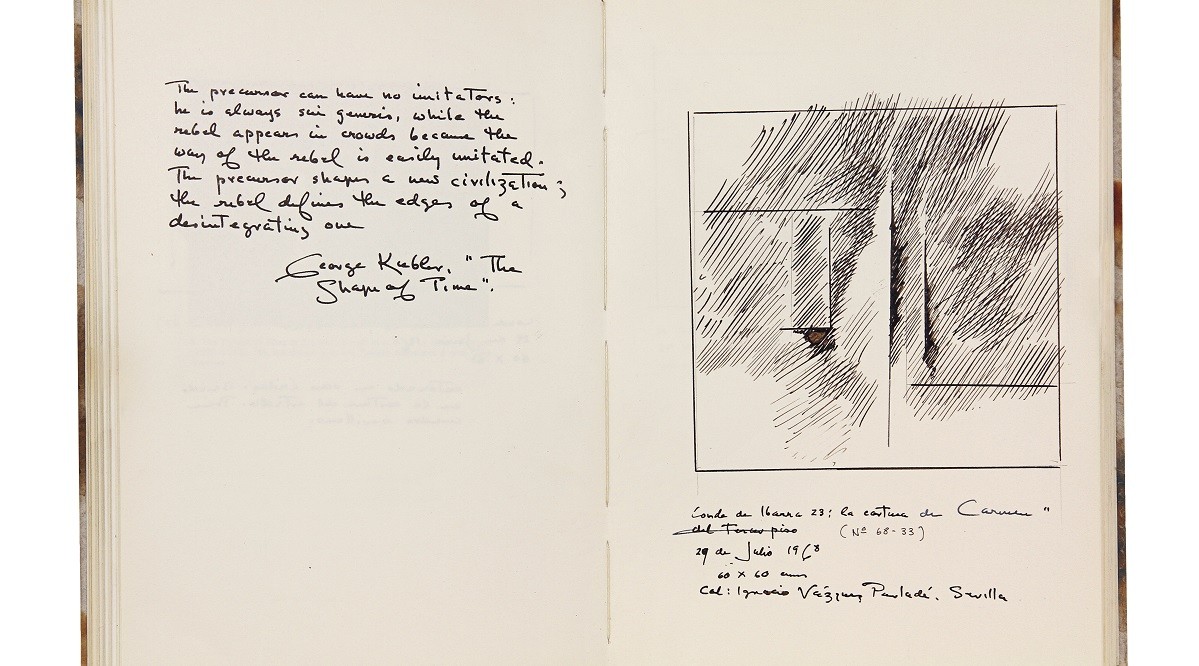 The precursor can have no imitators:
he is always sui generis, while the
rebel appears in crowds because the
way of the rebel is easily imitated.
The precursor shapes a new civilization;
the rebel defines the edges of a
desintegrating one
George Kubler, "The
Shape of Time".
Conde de Ibarra 23: la costura de Carmen"
del Tercer piso (Nº 68-33)
29 de Julio 1968
60 x 60 cms
Col: Ignacio Vázquez Parladé. Sevilla